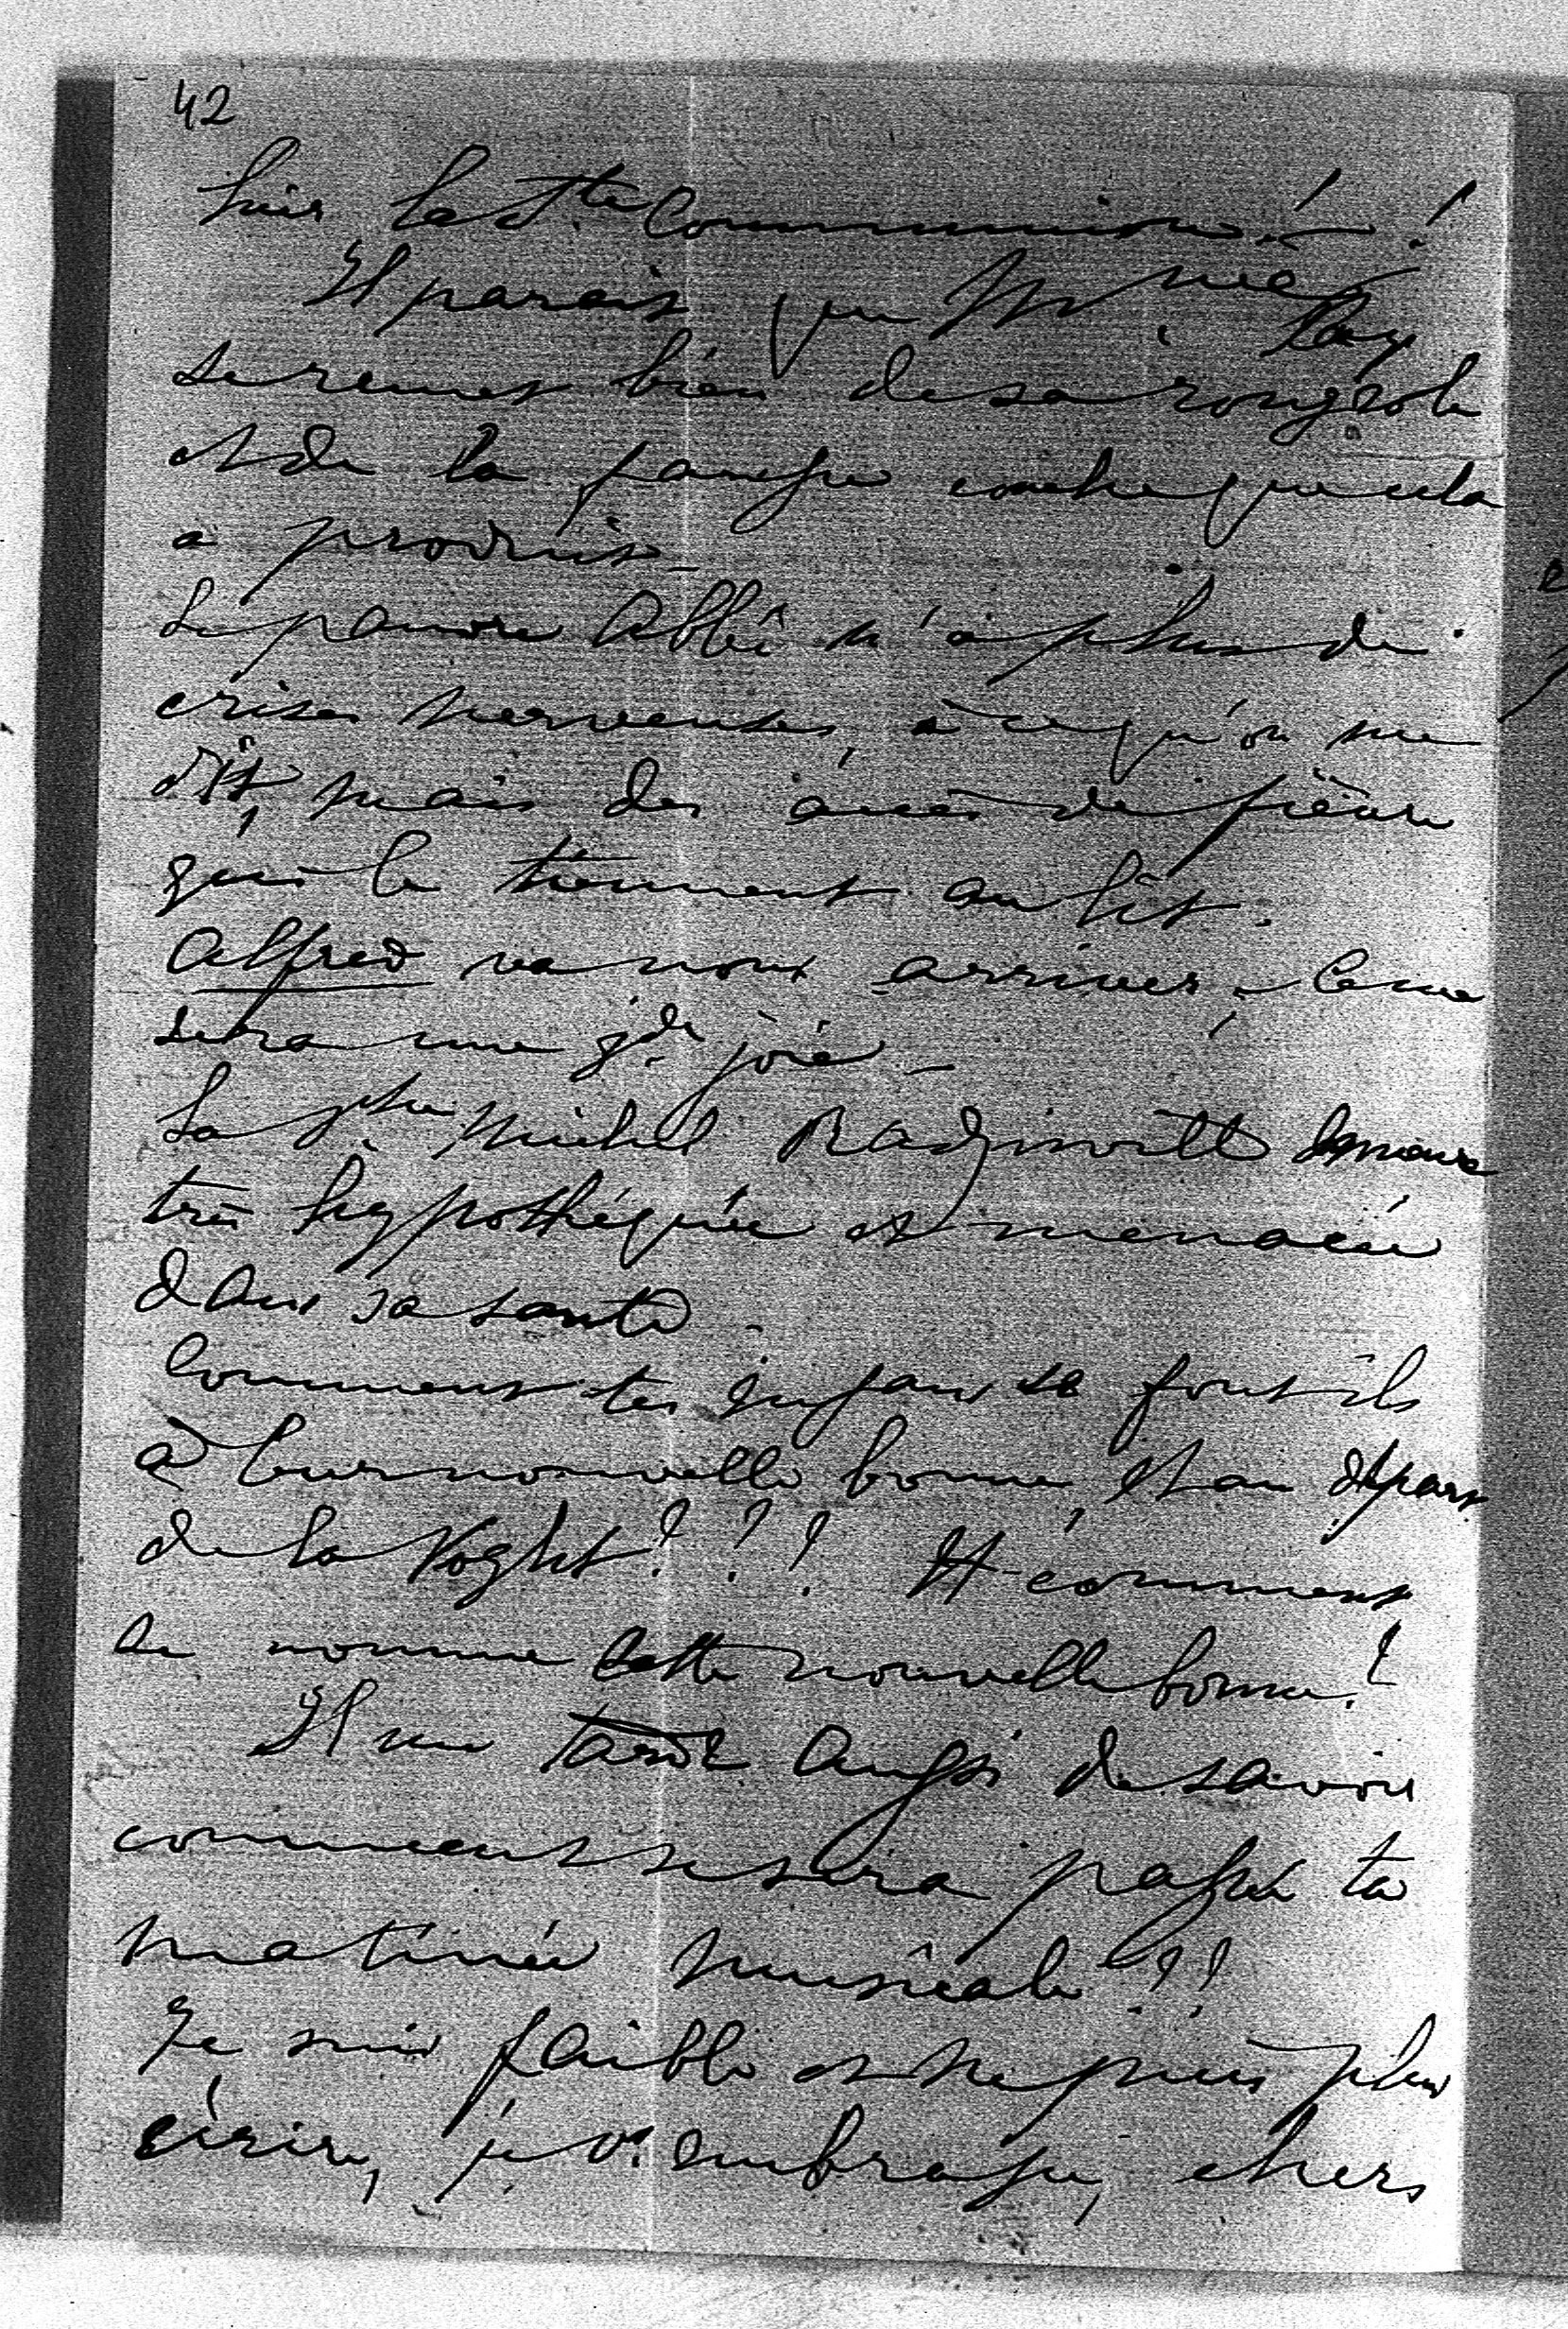 42
hier la Ste Communion ! !
Il parait que Mme
se remet bien de sa rougeole
et de la fausse couche que cela
a produit _
Le pauvre Abbé n'a plus de
crises nerveuses, à ce qu'on me
dit, mais des accès de fièvre
qui le tiennent au lit.
Alfred va nous arriver, Ce me
sera une gde joie _
La Psse Michel Radziwill demeure
très hypothéquée et menacée
dans sa santé .
Comment tes enfans se font-ils
à leur nouvelle bonne, et au départ
de la Voght ? ? ? Et comment
se nomme cette nouvelle bonne ?
Il me tarde aussi de savoir
comment se sera passée ta
matinée musicale !!
Je suis faible et ne puis plus
écrire, je vs embrasse, chers